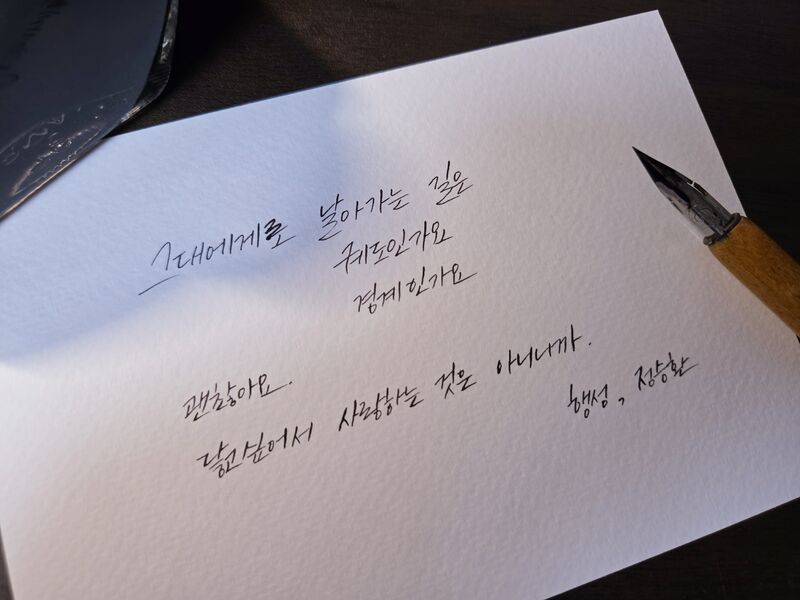 그대에게로 날아가는 길은
궤도인가요
경계인가요
괜찮아요.
닿고싶어서 사랑하는 것은 아니니까.
행성, 정승환